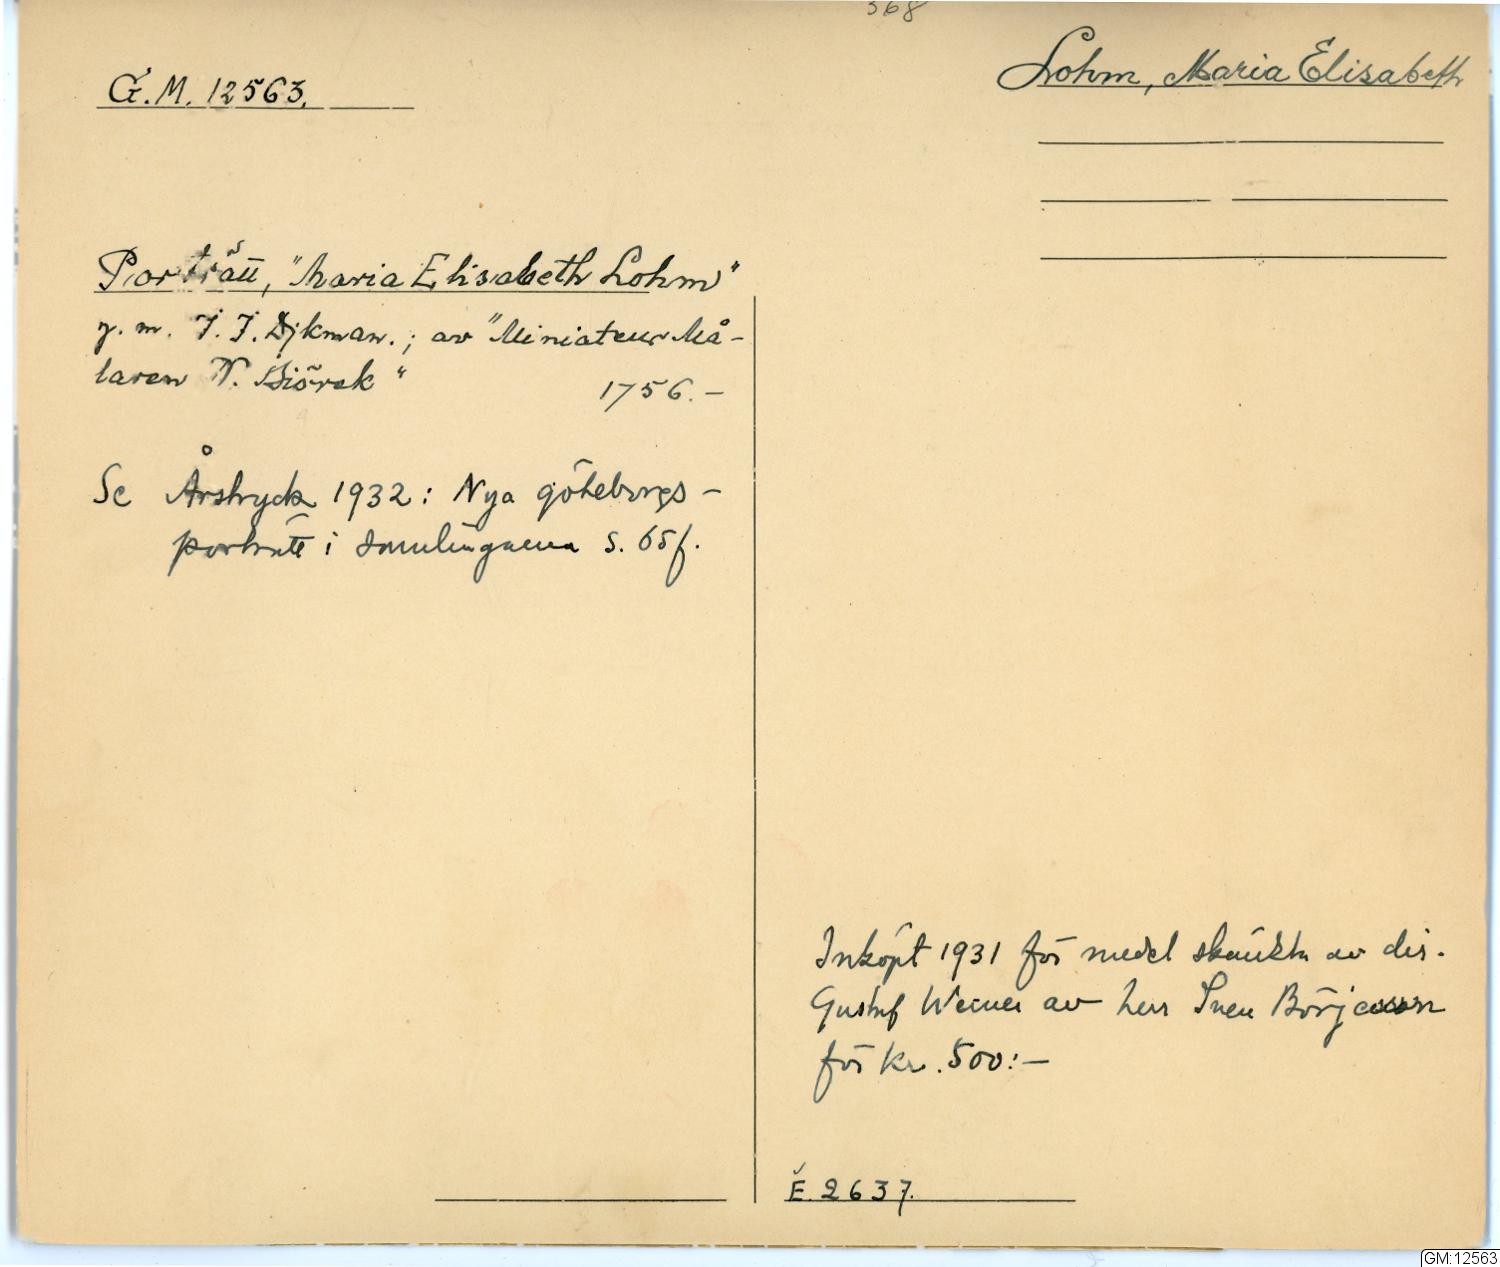 368
G.M. 12563.
Lohm, Maria Elisabeth
Porträtt, "Maria Elisabeth Lohm"
g. m. J. J. Dykman.; av "Miniateur Må-
laren N. Biörck"
1756.-
Se Årstryck 1932: Nya göteborgs-
porträtt i samlingarna s. 65f.
Inköpt 1931 för medel skänkta av dir.
Gustaf Werner av herr Sven Börjesson
för kr. 500:-
E. 2637.
GM:12563